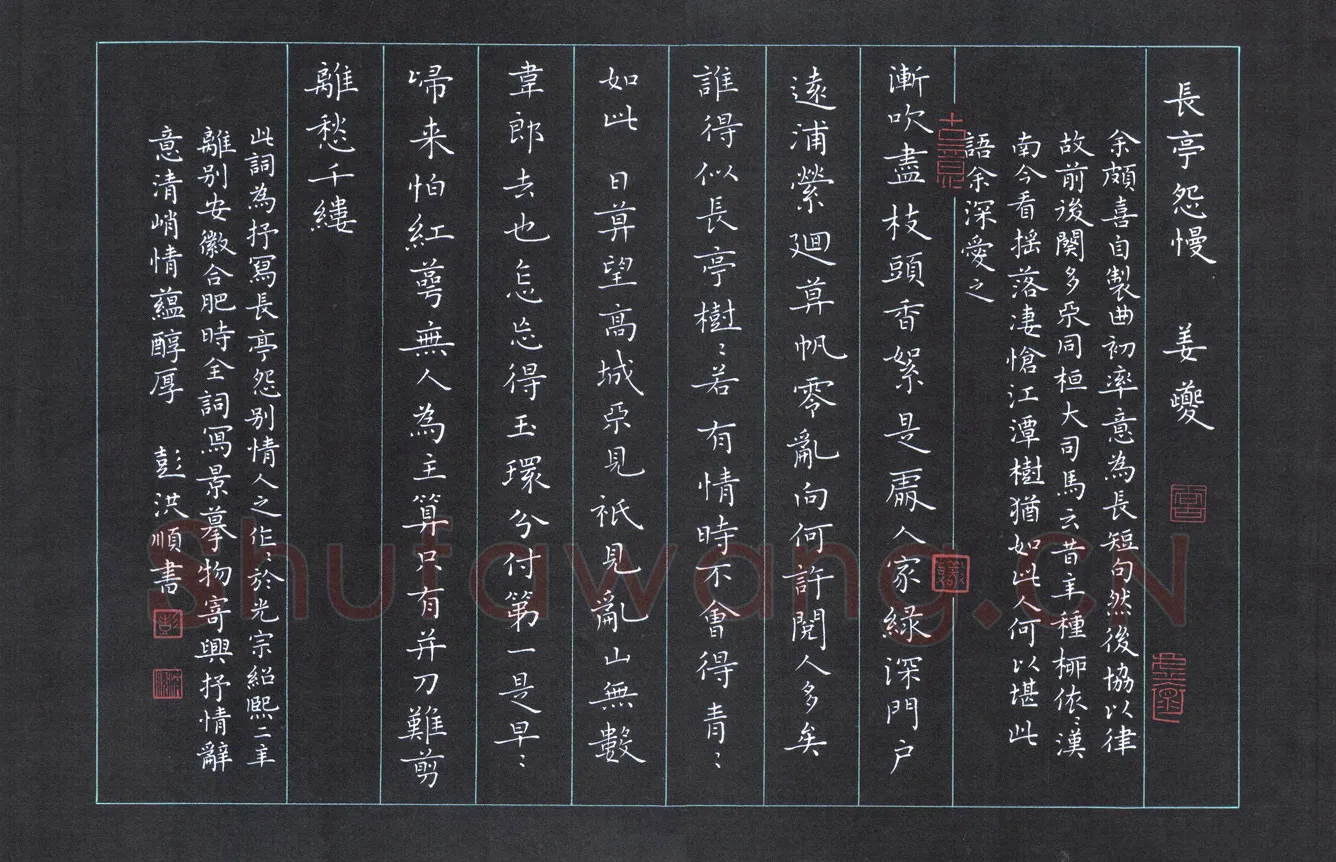 長亭怨慢 姜夔
余頗喜自製曲初率意為長短句然後協以律
故前後闋多不同桓大司馬云昔年種柳依〻漢
南今看揺落凄愴江潭樹猶如此人何以堪此
語余深愛之
漸吹盡枝頭香絮是處人家緑深門户
遠浦縈廻算帆零亂向何許閲人多矣
誰得似長亭樹〻若有情時不會得青〻
如此 日算望高城不見祇見亂山無數
韋郎去也怎忘得玉環分付第一是早〻
㱕来怕紅萼無人為主算只有并刀難剪
離愁千縷
此詞為抒寫長亭怨别情人之作〻於光宗紹熙二年
離别安徽合肥時全詞寫景摹物寄興抒情辭
意清峭情藴醇厚 彭洪順書
Shufawang.CN